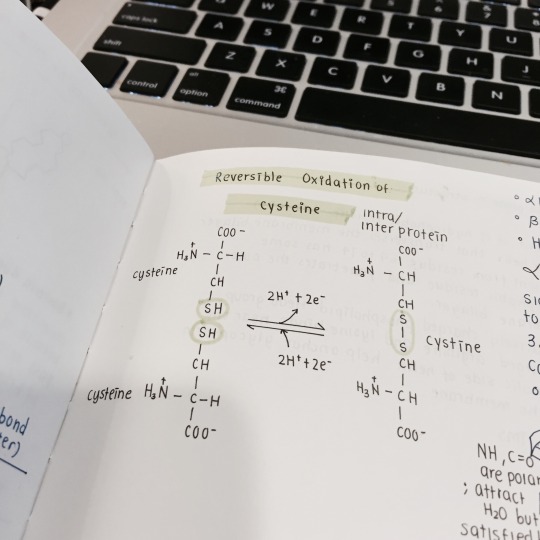 W E R T Y U
caps lock A S D F G H J
shift Z X C V B N
control alt option ⌘ command
Reversible Oxidation of
Cysteine
intra/
inter protein
cysteine
COO⁻
H₃N⁺ – C – H
CH
SH
SH
CH
cysteine H₃N⁺ – C – H
COO⁻
2H⁺ + 2e⁻
2H⁺ + 2e⁻
COO⁻
H₃N⁺ – CH
CH
S
S
Cystine
CH
H₃N⁺ – CH
COO⁻
bond
α
β
H
α
to
3.
NH, C=O
are polar
; attract
H₂O but
satisfied